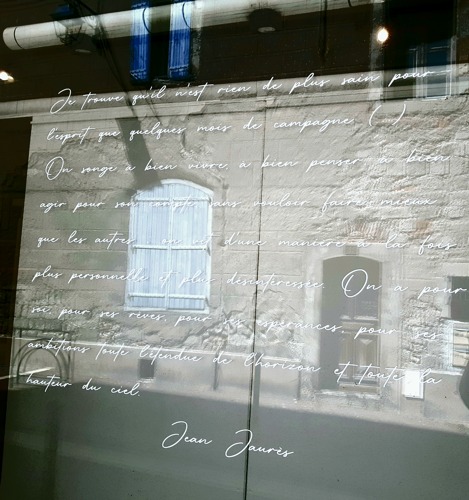 Je trouve qu'il n'est rien de plus sain pour
l'esprit que quelques mois de campagne (...)
On songe à bien vivre, à bien penser, à bien
agir pour son compte sans vouloir faire mieux
que les autres, on vit d'une manière à la fois
plus personnelle et plus désintéressée. On a pour
soi, pour ses rêves, pour ses espérances, pour ses
ambitions toute l'étendue de l'horizon et toute la
hauteur du ciel.
Jean Jaurès